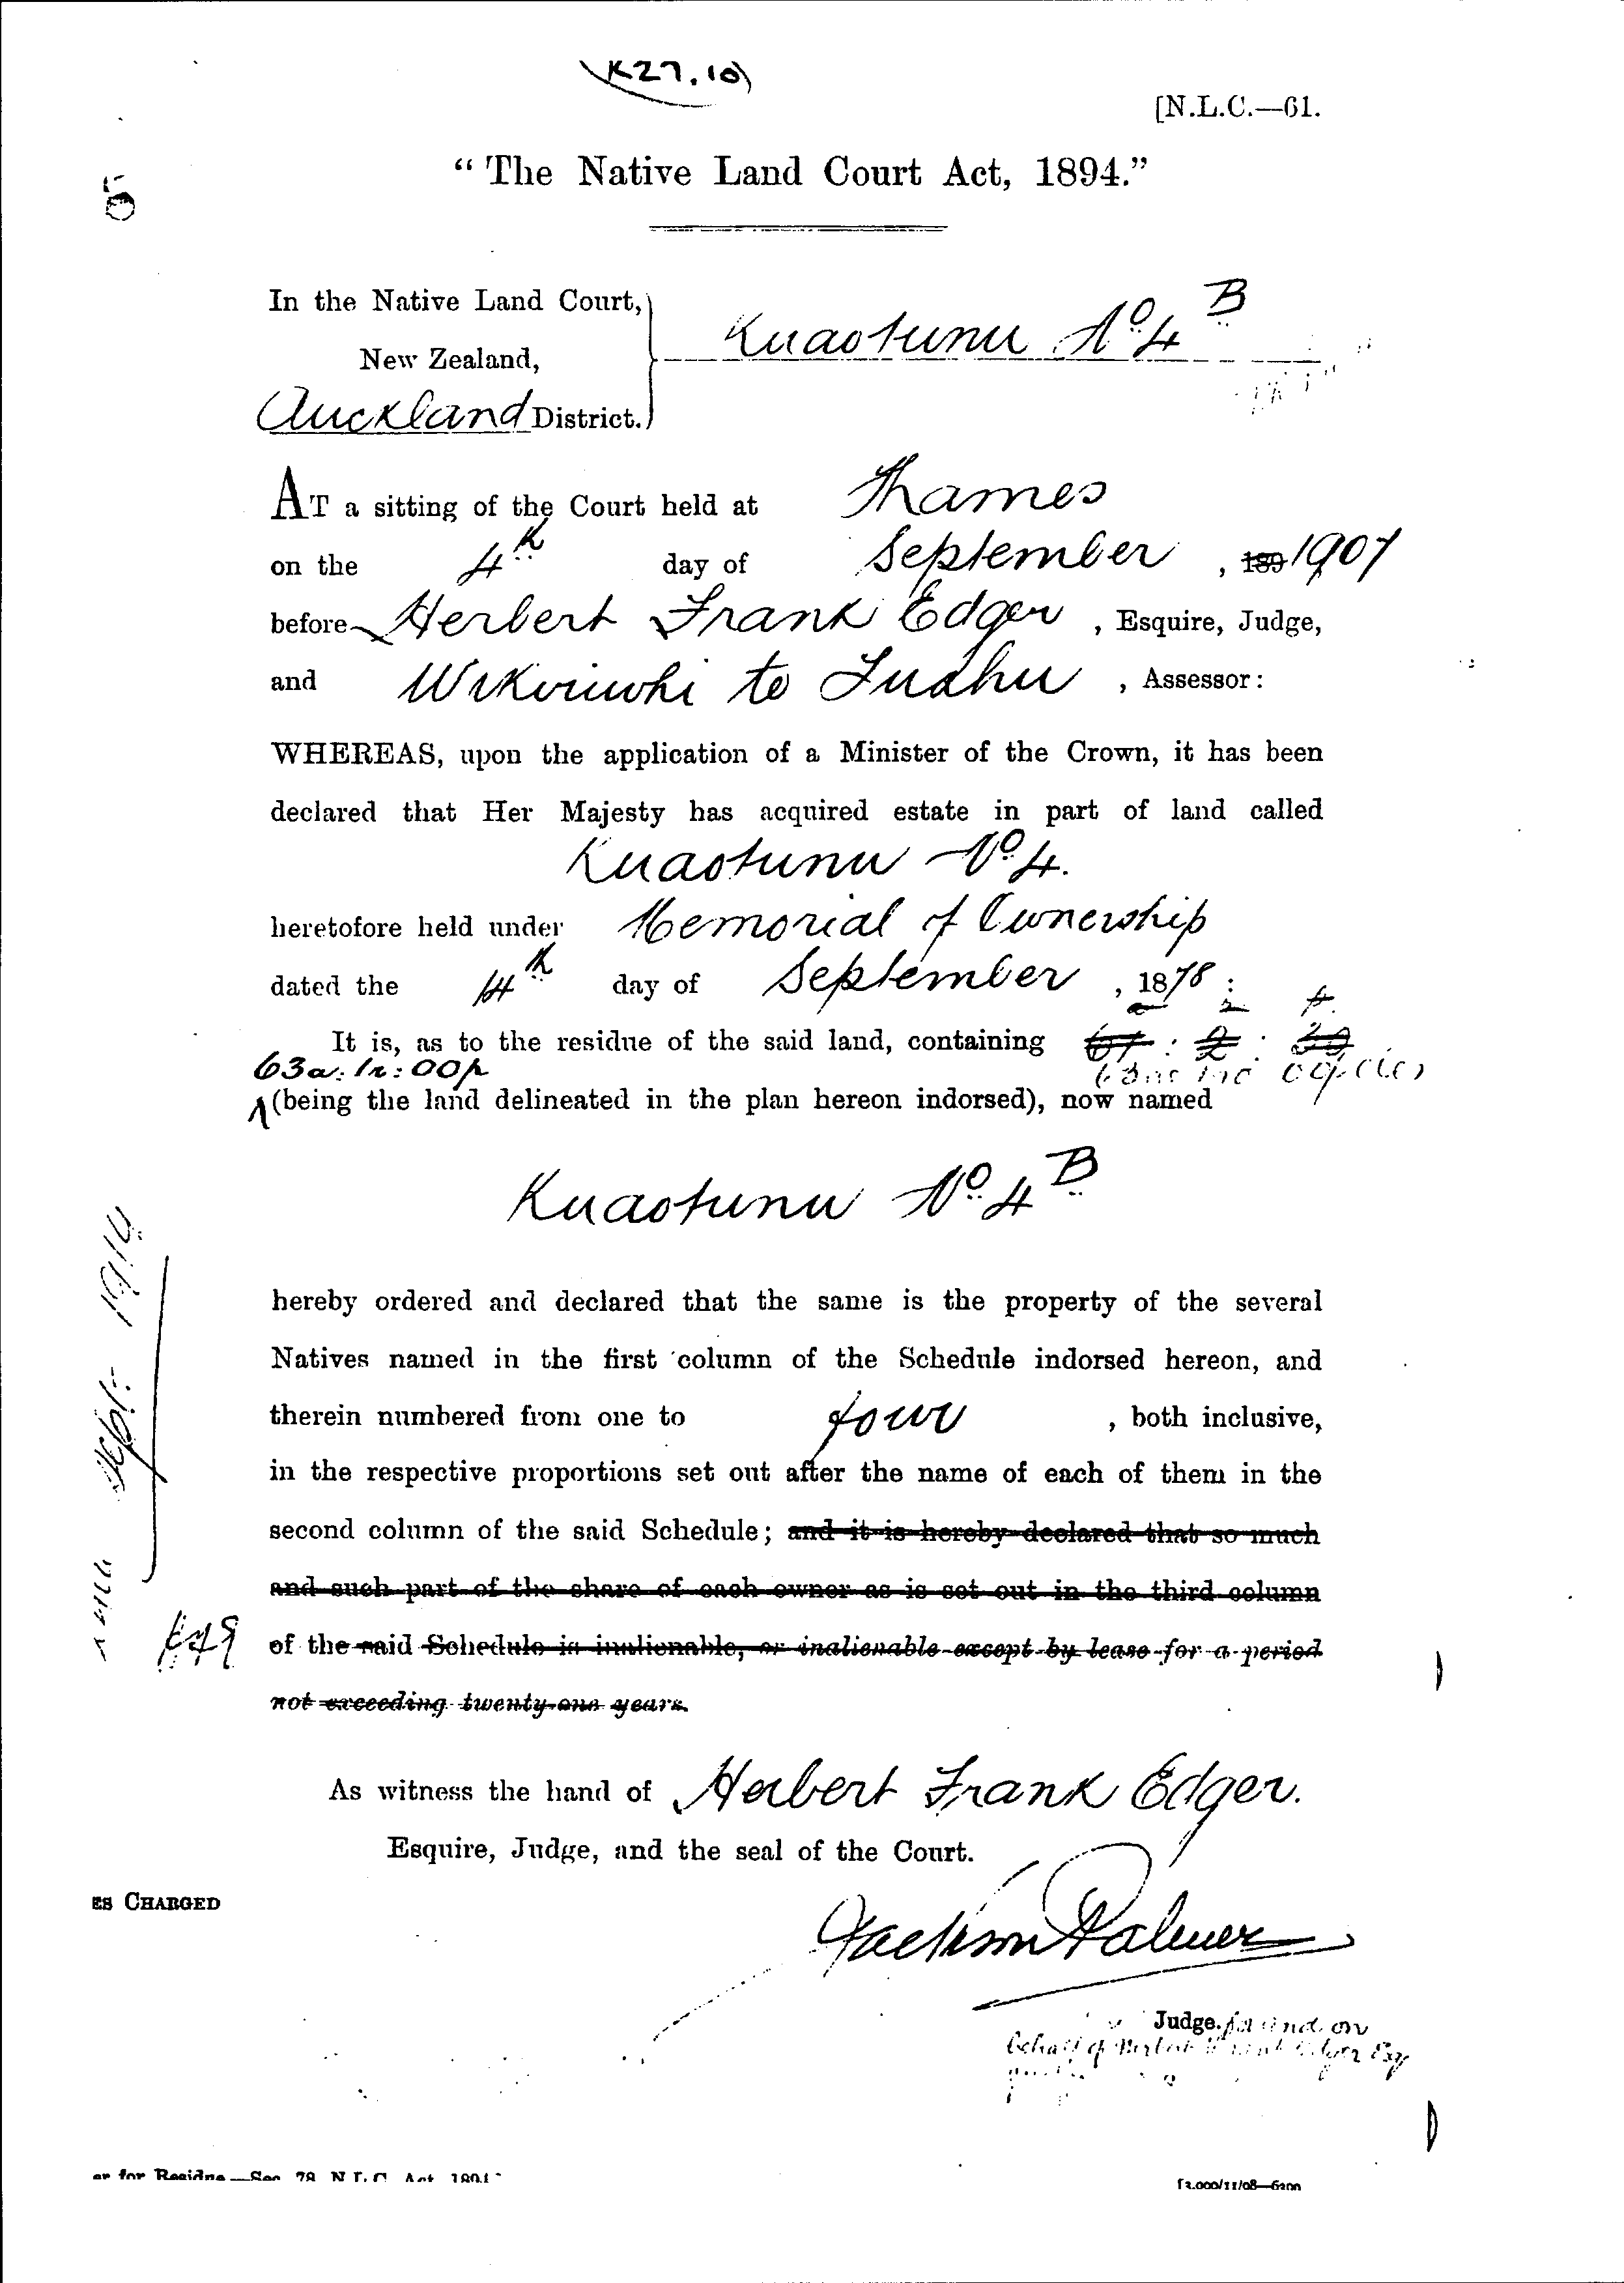 K27.10
[N.L.C.—61.
“The Native Land Court Act, 1894.”
In the Native Land Court,
New Zealand,
Auckland District.
Kuaotunu No 4 B
AT a sitting of the Court held at Thames
on the 4th day of September, 189 1907
before Herbert Frank Edger, Esquire, Judge,
and te Tuahu, Assessor:
WHEREAS, upon the application of a Minister of the Crown, it has been
declared that Her Majesty has acquired estate in part of land called
Kuaotunu No 4.
heretofore held under Memorial of Ownership
dated the 14th day of September, 1878:
It is, as to the residue of the said land, containing
63a: 1r: 00p
(being the land delineated in the plan hereon indorsed), now named
Kuaotunu No 4 B
hereby ordered and declared that the same is the property of the several
Natives named in the first column of the Schedule indorsed hereon, and
therein numbered from one to four, both inclusive,
in the respective proportions set out after the name of each of them in the
second column of the said Schedule; and it is hereby declared that so much
and such part of the share of each owner as is set out in the third column
of the said Schedule is inalienable, or inalienable except by lease for a period
not exceeding twenty-one years.
As witness the hand of Herbert Frank Edger.
Esquire, Judge, and the seal of the Court.
ES CHARGED
Jackson Palmer
Judge. for and on
behalf of Herbert Frank Edger Esq
Sept 1910
er for Residue—Sec. 78 N.L.C. Act, 1894